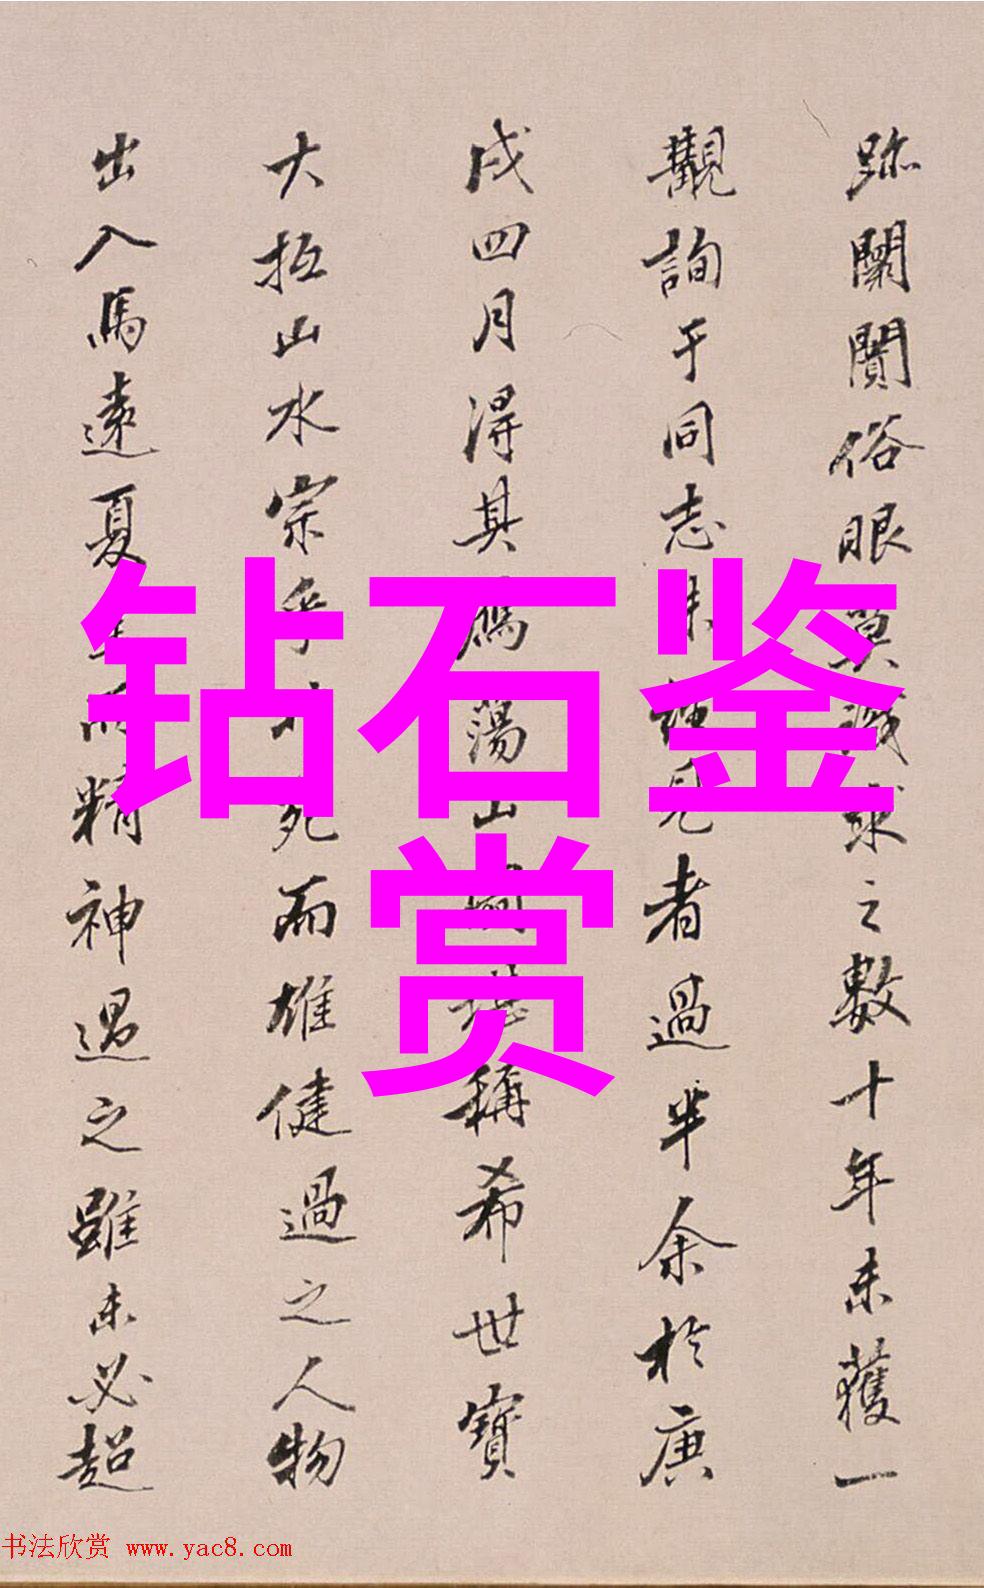 跡闌闠俗眼莫識求之數十年未獲一
觀詢于同志未經見者過半余於庚
戌四月得其碭山圖堪稱希世寶
大抵山水宗乎而雄健過之人物
出入馬遠夏而精神過之雖未必超
钻石鉴
赏
书法欣赏 www.yac8.com